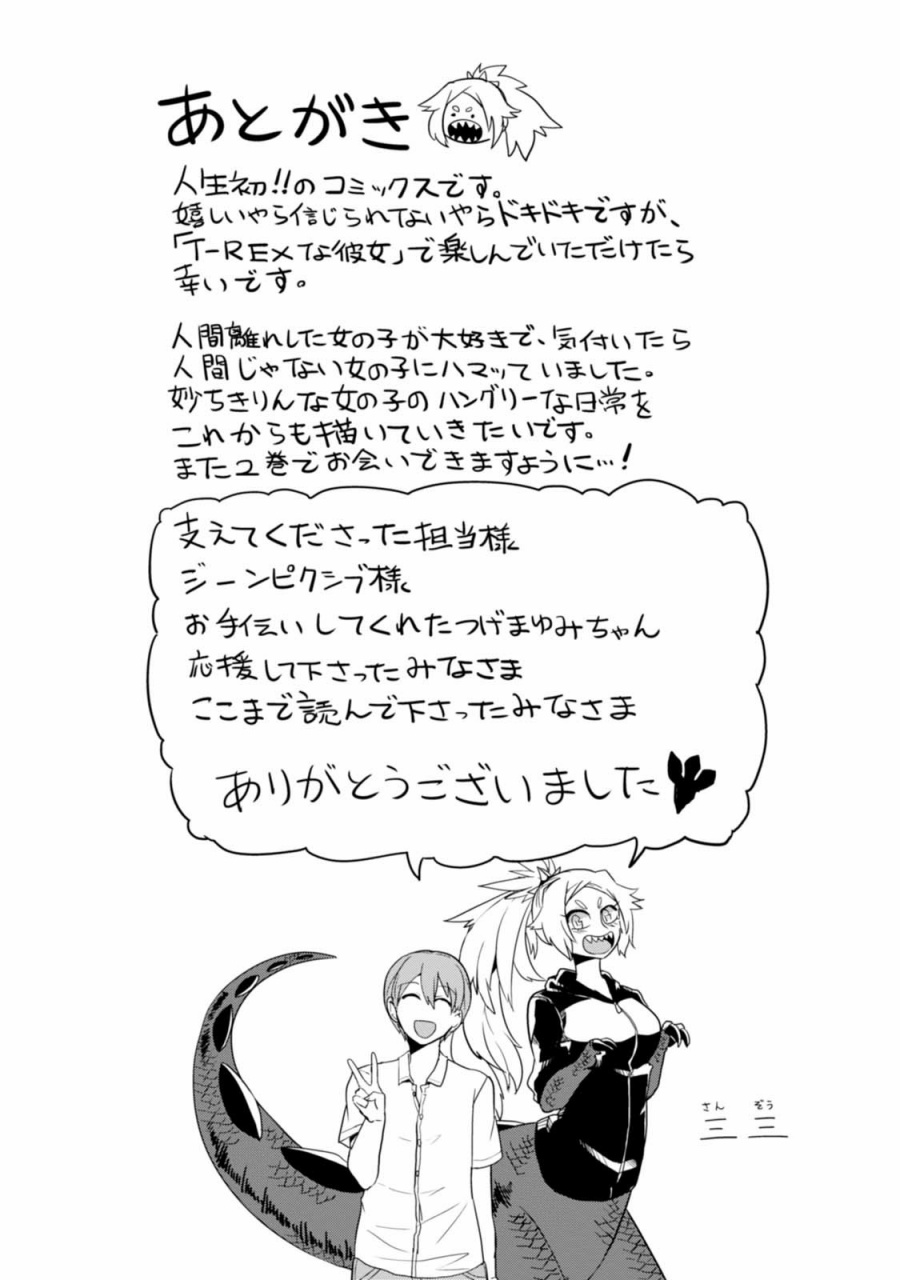 あとがき
人生初!!のコミックスです。
嬉しいやら信じられないやらドキドキですが、
「T-REXな彼女」で楽しんでいただけたら
幸いです。
人間離れした女の子が大好きで、気付いたら
人間じゃない女の子にハマッていました。
妙ちきりんな女の子のハングリーな日常を
これからも描いていきたいです。
また2巻でお会いできますように…!
支えてくださった担当様
ジーンピクシブ様
お手伝いしてくれたつげまゆみちゃん
応援して下さったみなさま
ここまで読んで下さったみなさま
ありがとうございました
さん ぞう
三 三